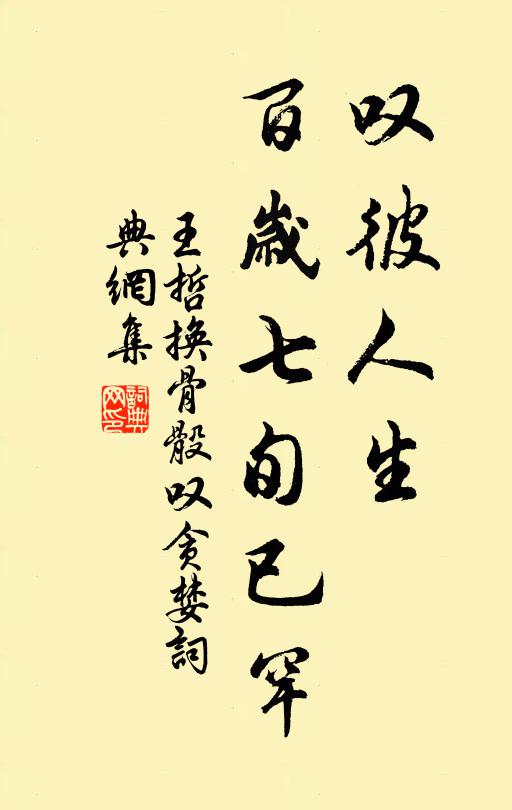 叹彼人生
百歲七旬已罕
王哲换骨骰叹贪婪詞
典網集
詞典
网印